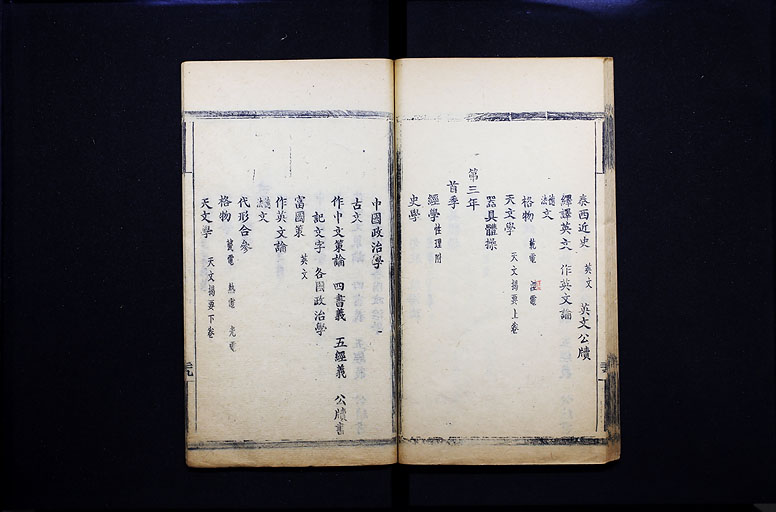 泰西近史 英文 英文公牘
繹譯英文 作英文論
德法文
格物 乾電 溼電
天文學 天文揭要上卷
器具體操
第三年
首季
經學 性理附
史學
中國政治學
古文
作中文策論 四書義 五經義 公牘書
記文字 各國政治學
富國策 英文
作英文論
德法文
代形合參
格物 熱電 光電
天文學 天文揭要下卷